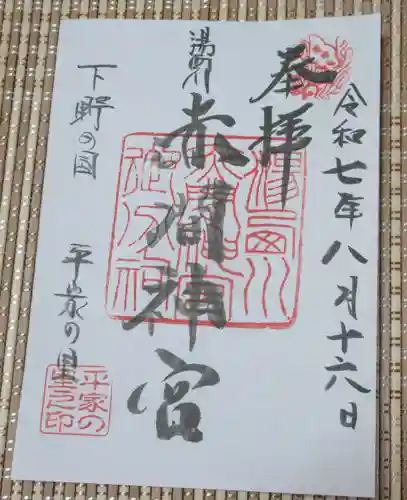 令和七年八月十六日
奉拝
湯西川
赤間神宮
下野の国
平家の里
平家の
里之印